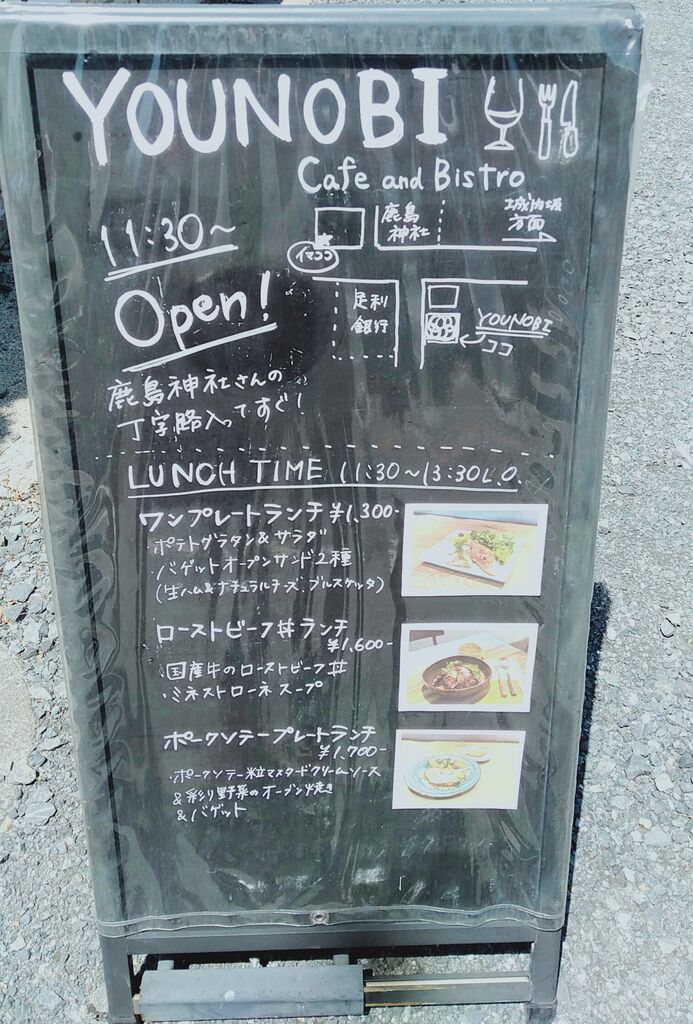 YOUNOBI
Cafe and Bistro
11:30~
Open!
鹿島神社さんの
丁字路入ってすぐ!
鹿島
神社
城内坂
方面
イマココ
足利
銀行
YOUNOBI
ココ
LUNCH TIME 11:30~13:30L.O.
ワンプレートランチ ¥1,300-
・ポテトグラタン&サラダ
・バゲットオープンサンド2種
(生ハム&ナチュラルチーズ、ブルスケッタ)
ローストビーフ丼ランチ
¥1,600-
・国産牛のローストビーフ丼
・ミネストローネスープ
ポークソテープレートランチ
¥1,700-
・ポークソテー粒マスタードクリームソース
&彩り野菜のオーブン焼き
&バゲット